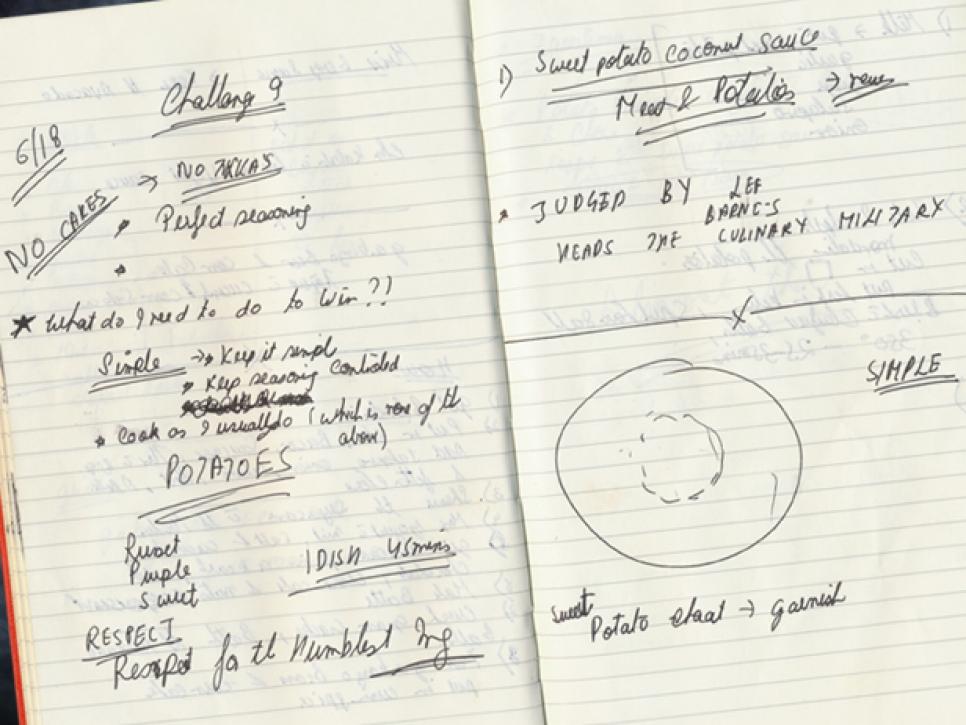 Challang 9
6/18
NO CAKES
→ NO TIKKAS
• Perfect seasoning
•
★ What do I need to do to Win??
Simple → • Keep it simple
• Keep seasoning controlled
• Cook as I usually do (which is none of the
above)
POTATOES
Russet
Purple
Sweet
1 DISH 45 mins
RESPECT
Respect for th Humblest Ing
1) Sweet potato coconut sauce
Meat & Potatoes →
• JUDGED BY LEE
BARNES
HEADS THE CULINARY MILITARY
X
SIMPLE
Sweet
Potato chaat → garnish